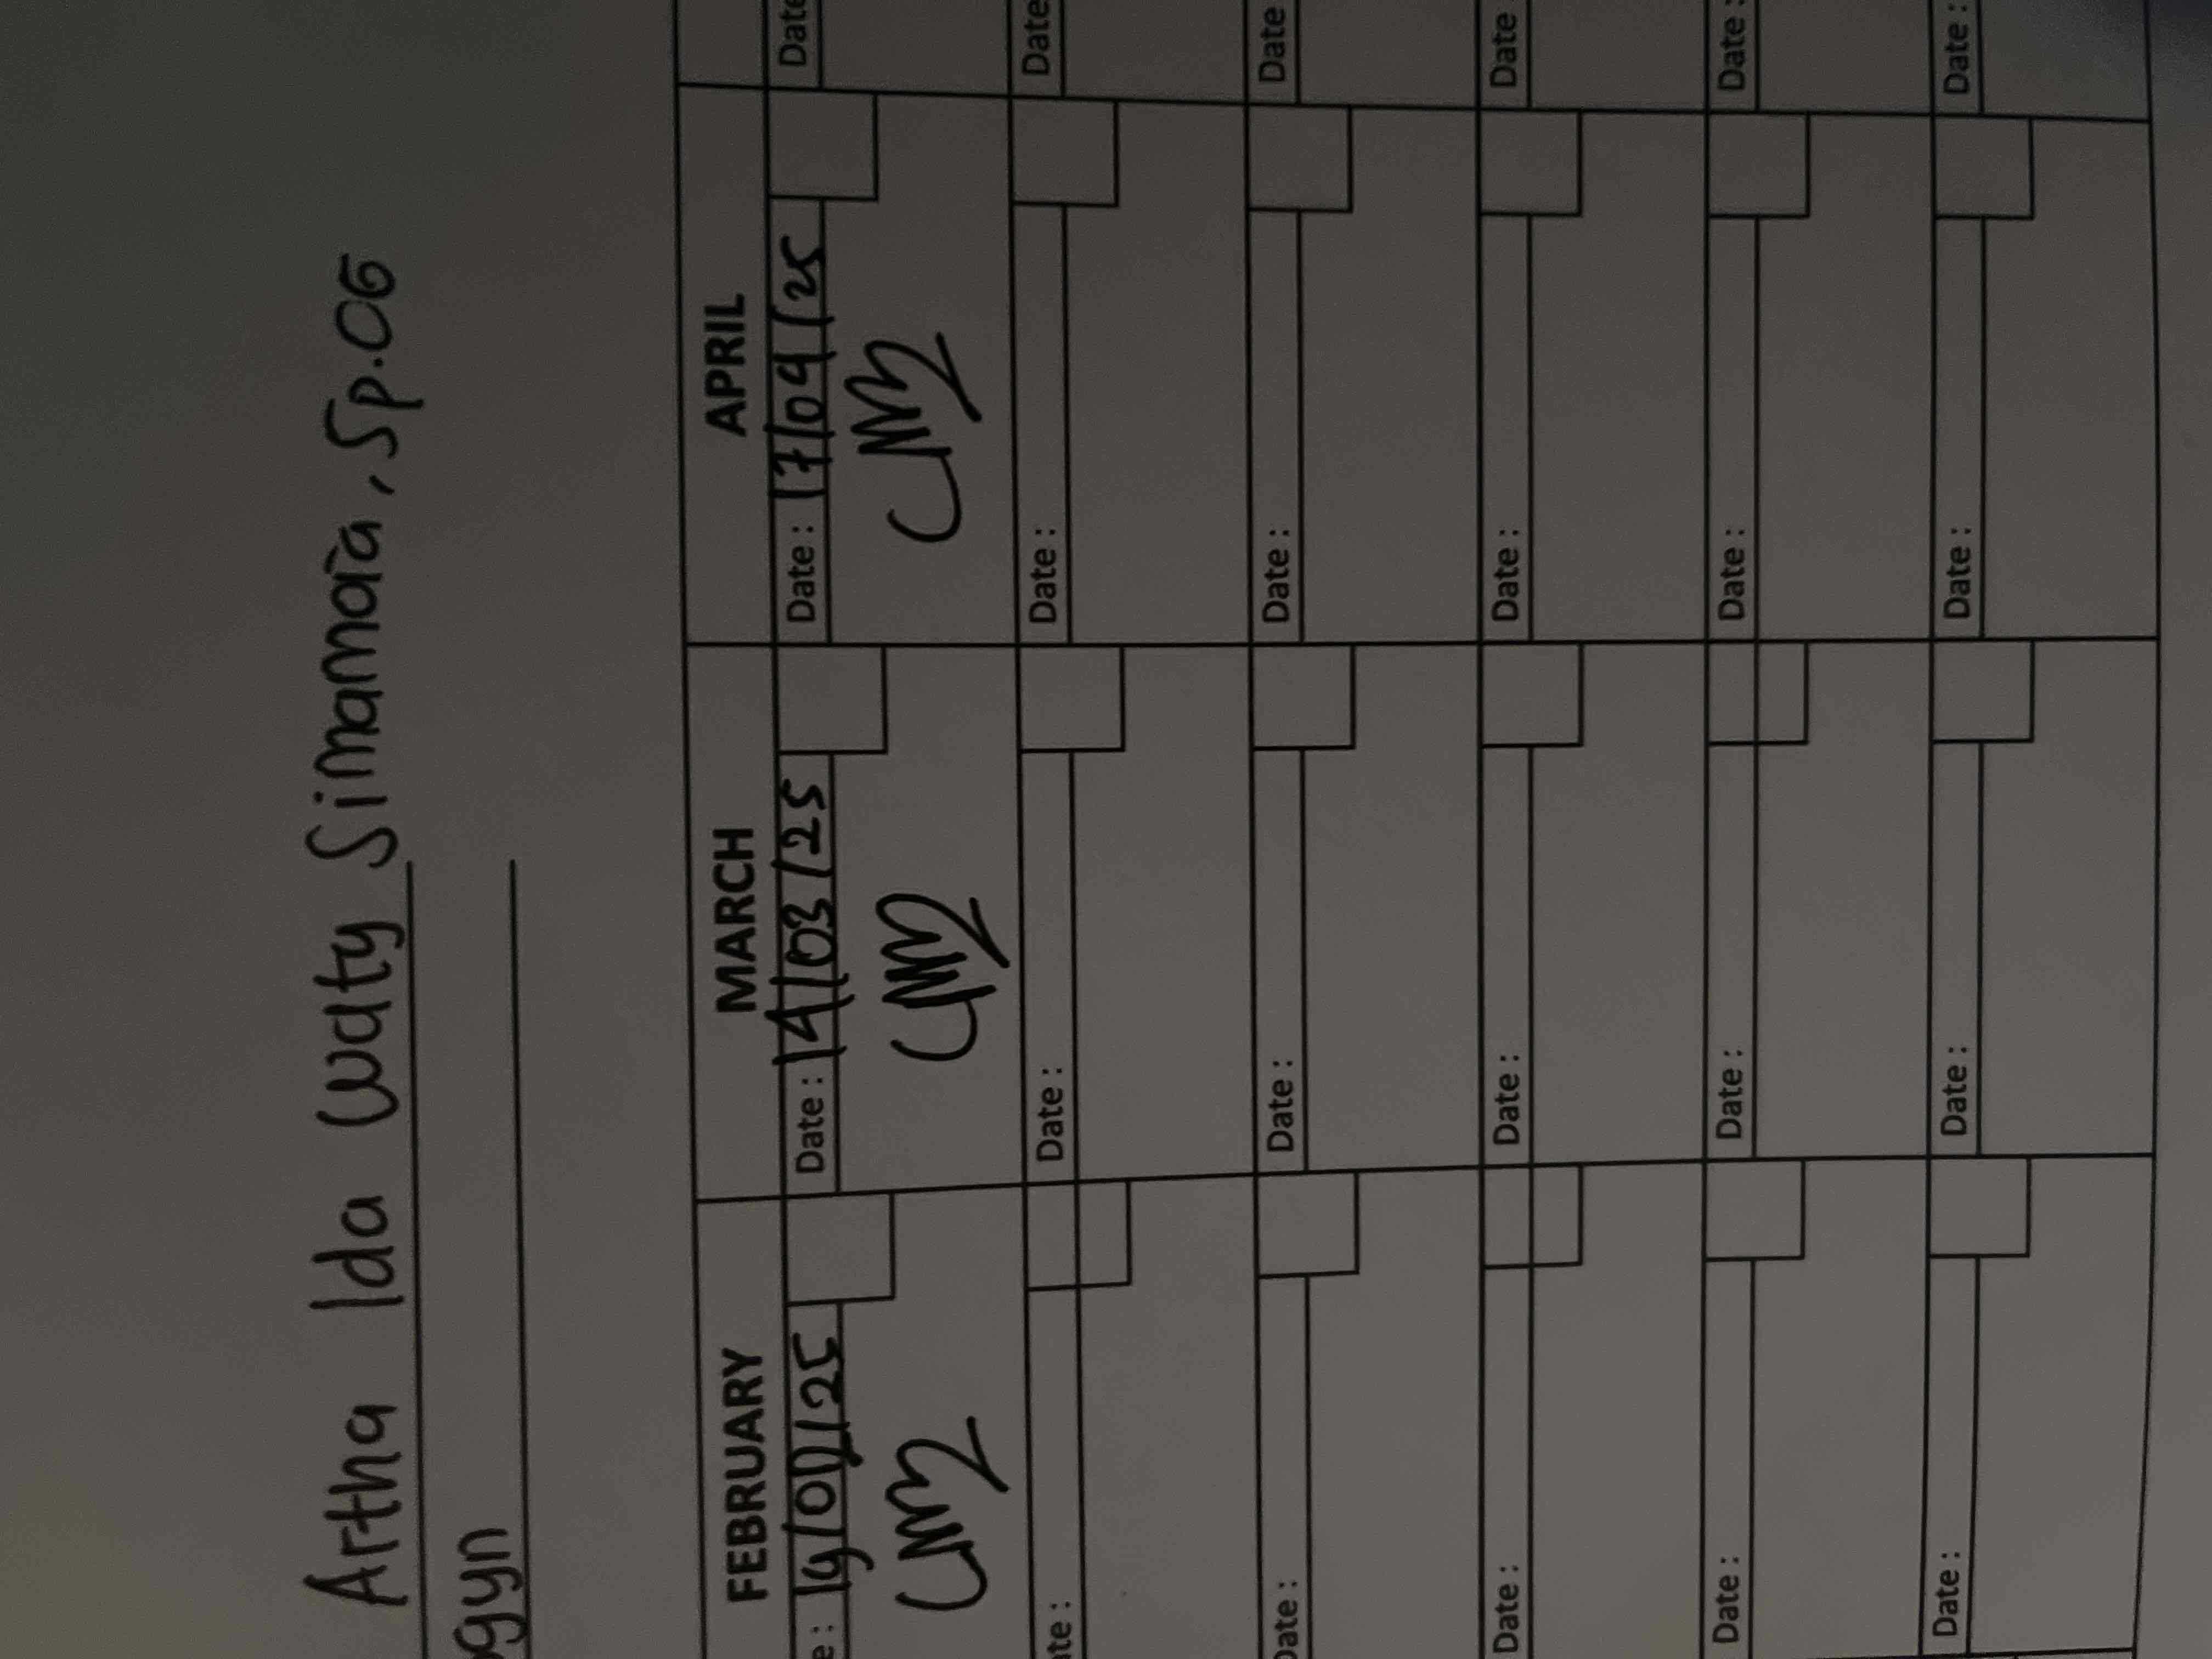 Artha Ida Waty Simamora, Sp.OG
ogyn
FEBRUARY MARCH APRIL
Date : 14/03/25 Date : 17/04/25 Date
Date : Date : Date
Date : Date : Date : Date
Date : Date : Date : Date
Date : Date : Date : Date :
Date : Date : Date : Date :